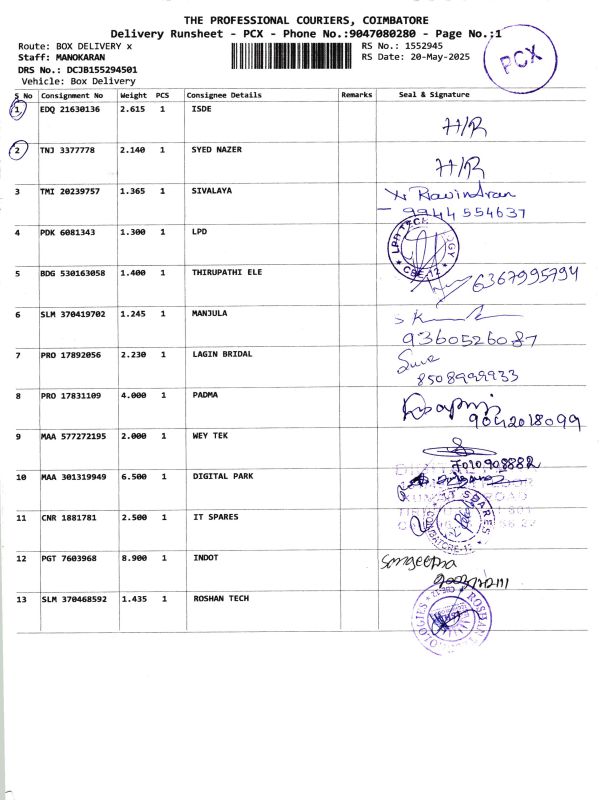 THE PROFESSIONAL COURIERS, COIMBATORE
Delivery Runsheet - PCX - Phone No.:9047080280 - Page No.;1
Route: BOX DELIVERY x
RS No.: 1552945
Staff: MANOKARAN
RS Date: 20-May-2025
DRS No.: DCJB155294501
Vehicle: Box Delivery
PCX
S No Consignment No Weight PCS Consignee Details Remarks Seal & Signature
1 EDQ 21630136 2.615 1 ISDE H/R
2 TNJ 3377778 2.140 1 SYED NAZER H/R
3 TMI 20239757 1.365 1 SIVALAYA Ravindran
9944554637
4 PDK 6081343 1.300 1 LPD
CBE-12
5 BDG 530163058 1.400 1 THIRUPATHI ELE 6367995794
6 SLM 370419702 1.245 1 MANJULA
9360526087
7 PRO 17892056 2.230 1 LAGIN BRIDAL
8508999933
8 PRO 17831109 4.000 1 PADMA
9042018099
9 MAA 577272195 2.000 1 WEY TEK
7010908882
10 MAA 301319949 6.500 1 DIGITAL PARK
11 CNR 1881781 2.500 1 IT SPARES
IT SPARES
12 PGT 7603968 8.900 1 INDOT Sangeetha
13 SLM 370468592 1.435 1 ROSHAN TECH